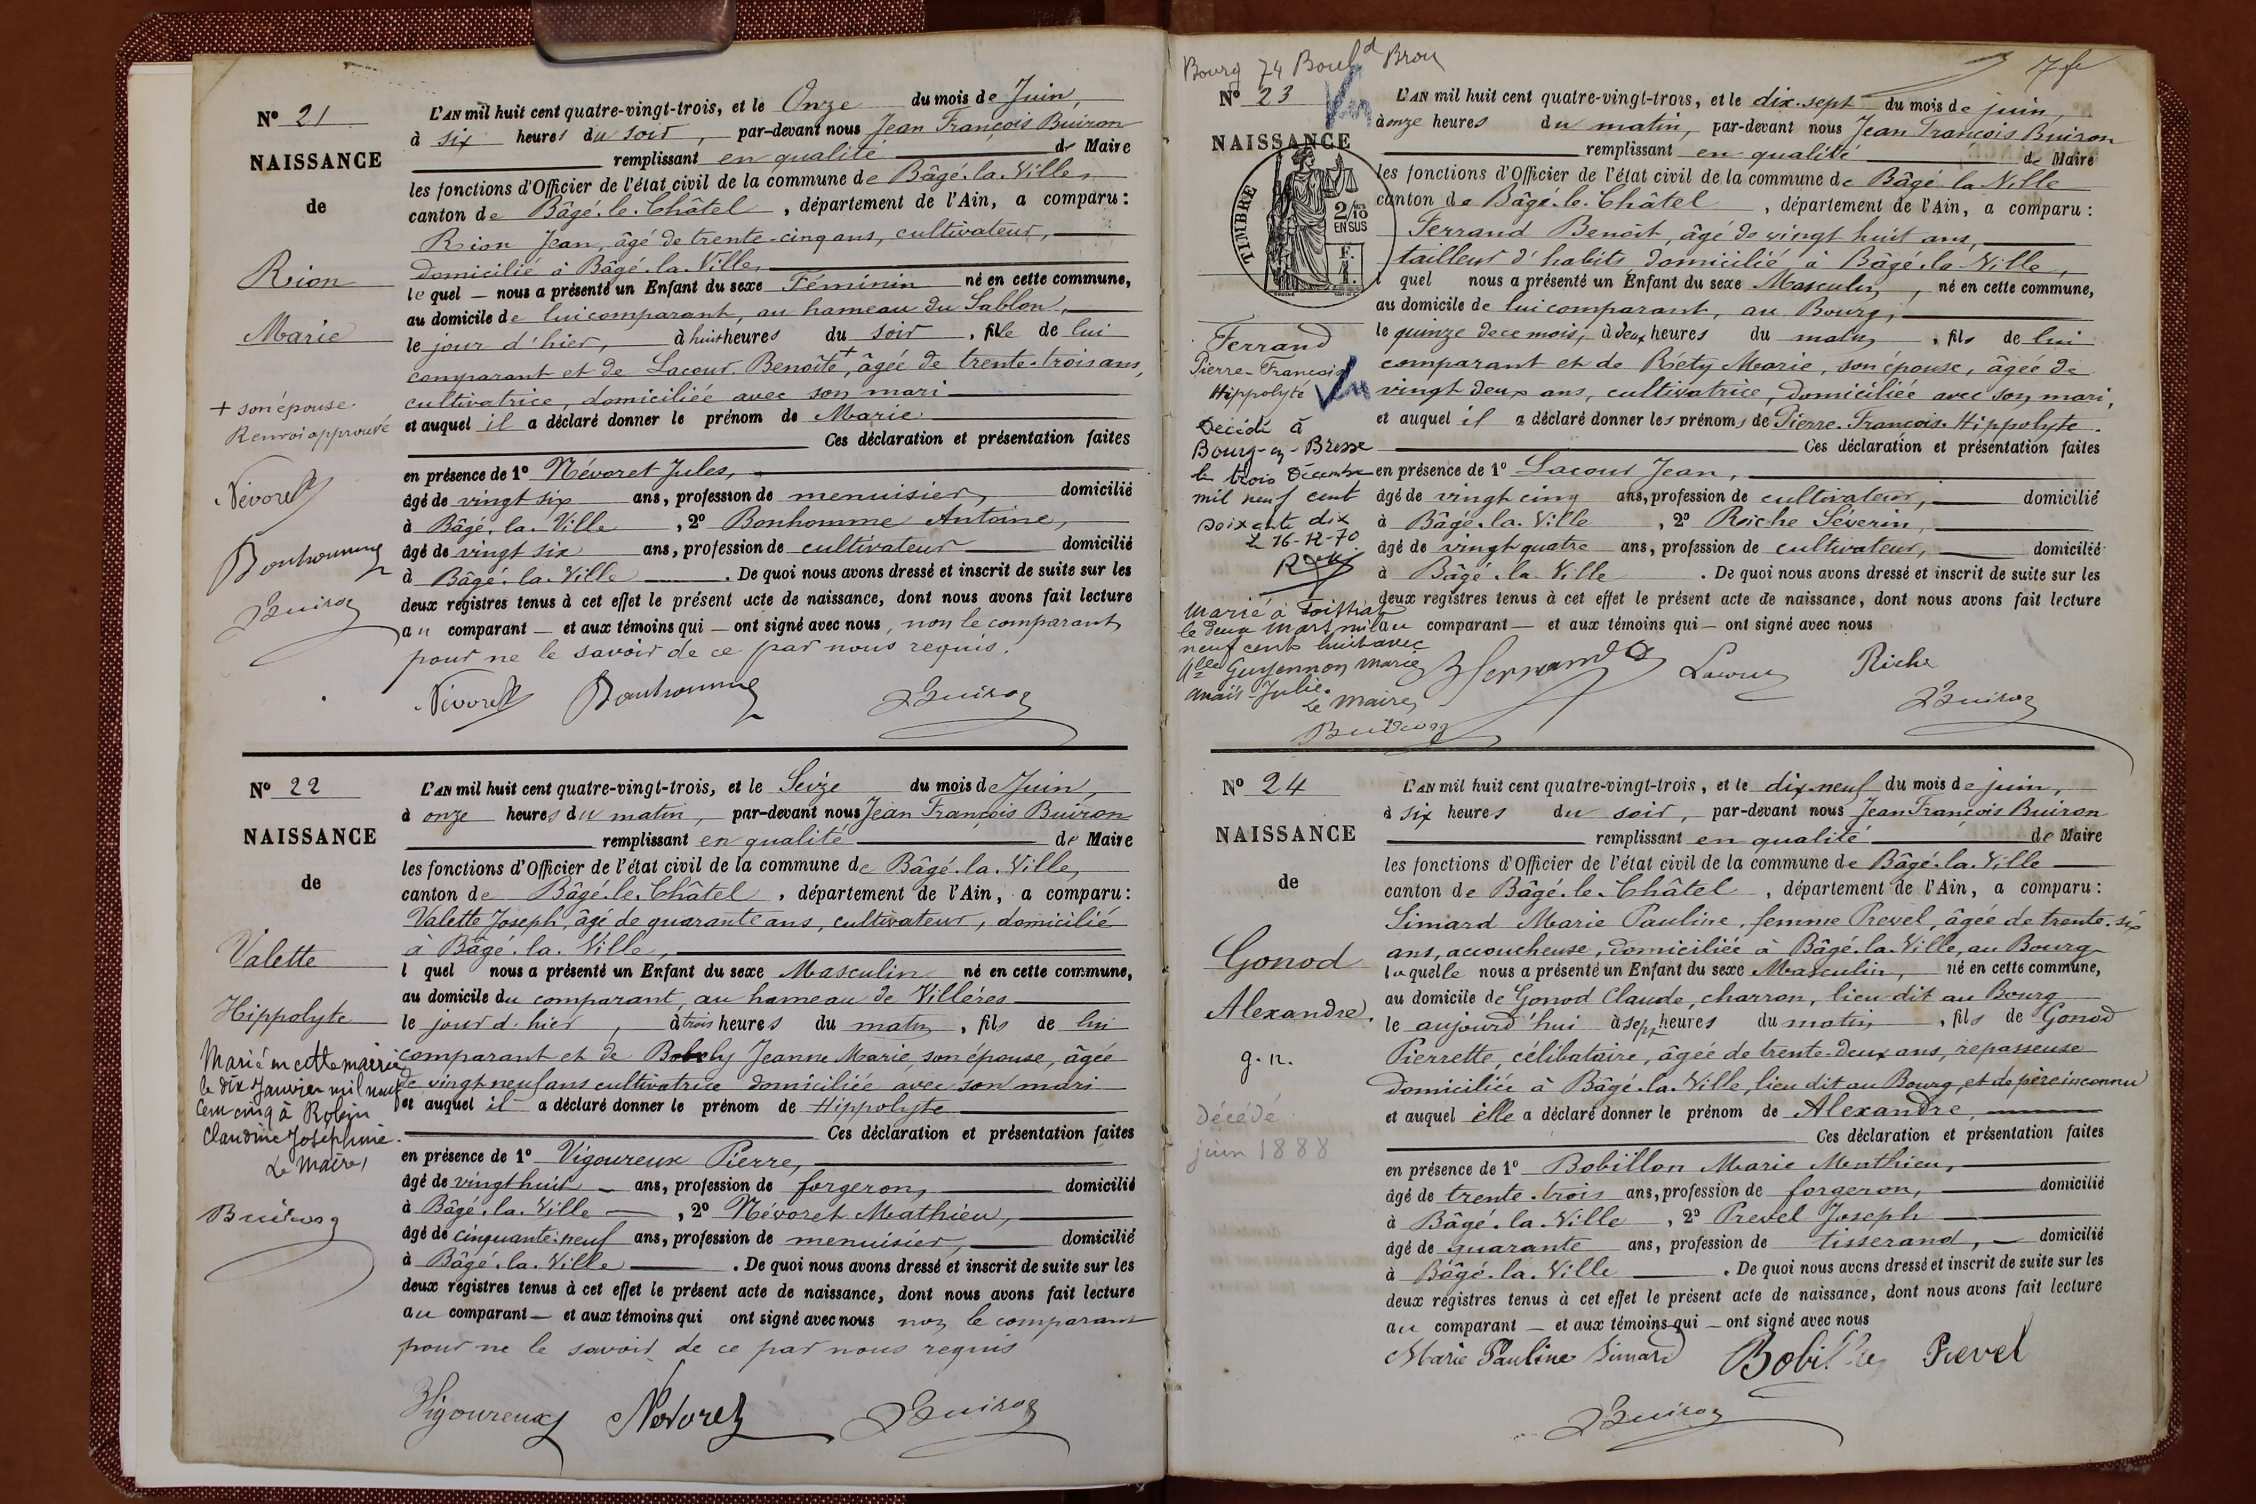 Nº 21
NAISSANCE
de
Rion
Marie
+ son épouse
Renvoi approuvé
Névoret
Bonhomme
Buiron
L'AN mil huit cent quatre-vingt-trois, et le Onze du mois de Juin,
à six heures du soir, par-devant nous Jean François Buiron
remplissant en qualité de Maire
les fonctions d'Officier de l'état civil de la commune de Bâgé-la-Ville,
canton de Bâgé-le-Châtel, département de l'Ain, a comparu :
Rion Jean, âgé de trente-cinq ans, cultivateur,
domicilié à Bâgé-la-Ville,
lequel nous a présenté un Enfant du sexe Féminin né en cette commune,
au domicile de lui comparant, au hameau du Sablon,
le jour d'hier, à huit heures du soir, fille de lui
comparant et de Lacour Benoîte +, âgée de trente-trois ans,
cultivatrice, domiciliée avec son mari
et auquel il a déclaré donner le prénom de Marie
Ces déclaration et présentation faites
en présence de 1º Névoret Jules,
âgé de vingt six ans, profession de menuisier, domicilié
à Bâgé-la-Ville, 2º Bonhomme Antoine,
âgé de vingt six ans, profession de cultivateur domicilié
à Bâgé-la-Ville. De quoi nous avons dressé et inscrit de suite sur les
deux registres tenus à cet effet le présent acte de naissance, dont nous avons fait lecture
au comparant et aux témoins qui ont signé avec nous, non le comparant
pour ne le savoir de ce par nous requis.
Névoret Bonhomme Buiron
Nº 22
NAISSANCE
de
Valette
Hippolyte
Marié en cette mairie
le dix Janvier mil neuf
cent cinq à Robin
Claudine Joséphine.
Le Maire,
Buiron
L'AN mil huit cent quatre-vingt-trois, et le Seize du mois de Juin,
à onze heures du matin, par-devant nous Jean François Buiron
remplissant en qualité de Maire
les fonctions d'Officier de l'état civil de la commune de Bâgé-la-Ville,
canton de Bâgé-le-Châtel, département de l'Ain, a comparu :
Valette Joseph, âgé de quarante ans, cultivateur, domicilié
à Bâgé-la-Ville,
l quel nous a présenté un Enfant du sexe Masculin né en cette commune,
au domicile du comparant, au hameau de Villéres
le jour d'hier, à trois heures du matin, fils de lui
comparant et de Jeanne Marie, son épouse, âgée
de vingt neuf ans cultivatrice domiciliée avec son mari
et auquel il a déclaré donner le prénom de Hippolyte
Ces déclaration et présentation faites
en présence de 1º Vigoureux Pierre,
âgé de vingt huit ans, profession de forgeron, domicilié
à Bâgé-la-Ville, 2º Névoret Mathieu,
âgé de cinquante-neuf ans, profession de menuisier, domicilié
à Bâgé-la-Ville. De quoi nous avons dressé et inscrit de suite sur les
deux registres tenus à cet effet le présent acte de naissance, dont nous avons fait lecture
au comparant et aux témoins qui ont signé avec nous non le comparant
pour ne le savoir de ce par nous requis
Vigoureux Névoret Buiron
Bourg 74 Boulᵈ Brou
7 f
Nº 23
NAISSANCE
TIMBRE
2/10
EN SUS
F.
1.
Ferrand
Pierre-François
Hippolyte
Décédé à
Bourg-en-Bresse
le trois Décembre
mil neuf cent
soixante dix
L 16-12-70
Marié à Foissiat
le deux Mars mil
neuf cent huit avec
Guyennon Marie
Anaïs-Julie.
Le Maire,
Buiron
L'AN mil huit cent quatre-vingt-trois, et le dix-sept du mois de juin,
à onze heures du matin, par-devant nous Jean François Buiron
remplissant en qualité de Maire
les fonctions d'Officier de l'état civil de la commune de Bâgé-la-Ville
canton de Bâgé-le-Châtel, département de l'Ain, a comparu :
Ferrand Benoit, âgé de vingt huit ans,
tailleur d'habits domicilié à Bâgé-la-Ville,
l quel nous a présenté un Enfant du sexe Masculin, né en cette commune,
au domicile de lui comparant, au Bourg,
le quinze de ce mois, à deux heures du matin, fils de lui
comparant et de Réty Marie, son épouse, âgée de
vingt deux ans, cultivatrice, domiciliée avec son mari,
et auquel il a déclaré donner les prénoms de Pierre-François-Hippolyte.
Ces déclaration et présentation faites
en présence de 1º Lacour Jean,
âgé de vingt cinq ans, profession de cultivateur, domicilié
à Bâgé-la-Ville, 2º Riche Séverin,
âgé de vingt quatre ans, profession de cultivateur, domicilié
à Bâgé-la-Ville. De quoi nous avons dressé et inscrit de suite sur les
deux registres tenus à cet effet le présent acte de naissance, dont nous avons fait lecture
au comparant et aux témoins qui ont signé avec nous
Ferrand Lacour Riche
Buiron
Nº 24
NAISSANCE
de
Gonod
Alexandre.
g. n.
Décédé
juin 1888
L'AN mil huit cent quatre-vingt-trois, et le dix-neuf du mois de juin,
à six heures du soir, par-devant nous Jean François Buiron
remplissant en qualité de Maire
les fonctions d'Officier de l'état civil de la commune de Bâgé-la-Ville
canton de Bâgé-le-Châtel, département de l'Ain, a comparu :
Simard Marie Pauline, femme Prevel, âgée de trente-six
ans, accoucheuse, domiciliée à Bâgé-la-Ville, au Bourg
laquelle nous a présenté un Enfant du sexe Masculin, né en cette commune,
au domicile de Gonod Claude, charron, lieu dit au Bourg
le aujourd'hui à sept heures du matin, fils de Gonod
Pierrette, célibataire, âgée de trente-deux ans, repasseuse
domiciliée à Bâgé-la-Ville, lieu dit au Bourg, et de père inconnu
et auquel elle a déclaré donner le prénom de Alexandre,
Ces déclaration et présentation faites
en présence de 1º Bobillon Marie Mathieu,
âgé de trente-trois ans, profession de forgeron, domicilié
à Bâgé-la-Ville, 2º Prevel Joseph
âgé de quarante ans, profession de tisserand, domicilié
à Bâgé-la-Ville. De quoi nous avons dressé et inscrit de suite sur les
deux registres tenus à cet effet le présent acte de naissance, dont nous avons fait lecture
au comparant et aux témoins qui ont signé avec nous
Marie Pauline Simard Bobillon Prevel
Buiron